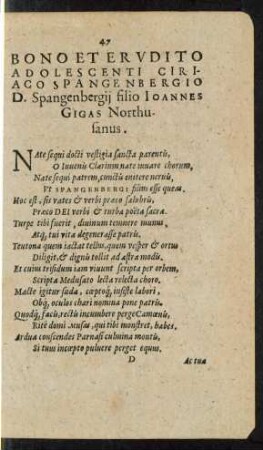 47
BONO ET ERVDITO
ADOLESCENTI CIRI-
ACO SPANGENBERGIO
D. Spangenbergij filio IOANNES
GIGAS Northu-
sanus.
NAte sequi docti vestigia sancta parentis,
O Iuuenis Clarium nate iuuare chorum,
Nate sequi patrem, cunctis enitere neruis,
Et SPANGENBERGI filius esse queas.
Hoc est, sis vates & verbi præco salubris,
Præco DEI verbi & turba poëta sacra.
Turpe tibi fuerit, diuinum temnere munus,
Atq́; tui vita degenerasse patris,
Teutona quem iactat tellus, quem vesper & ortus
Diligit, & dignis tollit ad astra modis.
Et cuius trifidum iam viuunt scripta per orbem,
Scripta Medusæo lecta relecta choro.
Macte igitur suda, cœptoq́; insiste labori,
Obq́; oculos chari nomina pone patris.
Quodq́; facis, rectis incumbere perge Camœnis,
Rite demi Musas, qui tibi monstret, habes.
Ardua conscendes Parnasi culmina montis,
Si tuus incœpto puluere perget equus.
D
Ac tua